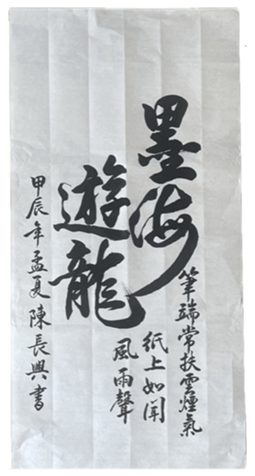 墨海
遊龍
筆端常扶雲煙氣
紙上如聞
風雨聲
甲辰年孟夏陳長興書